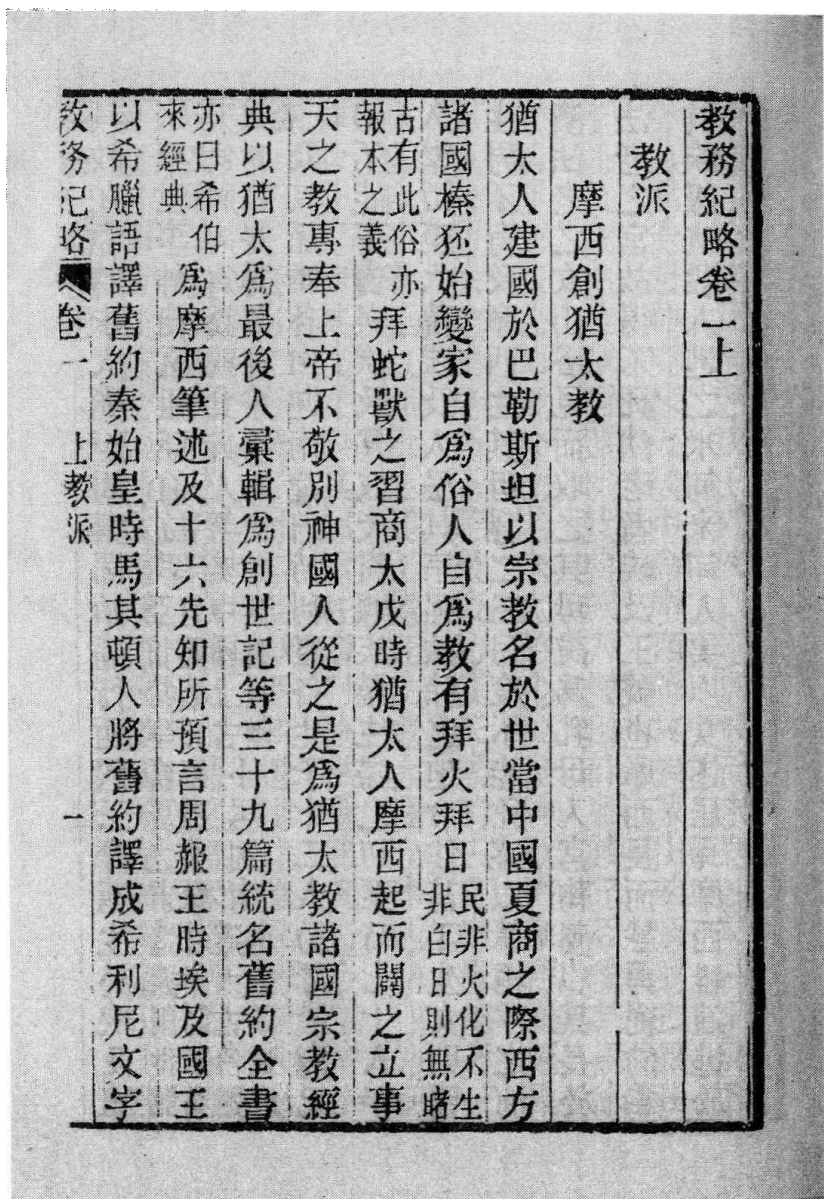 教務紀略卷一上
教派
摩西創猶太教
猶太人建國於巴勒斯坦以宗教名於世當中國夏商之際西方
諸國榛狉始變家自爲俗人自爲教有拜火拜日民非火化不生非白日則無睹
古有此俗亦報本之義拜蛇獸之習商太戊時猶太人摩西起而闢之立事
天之教專奉上帝不敬別神國人從之是爲猶太教諸國宗教經
典以猶太爲最後人彙輯爲創世記等三十九篇統名舊約全書
亦曰希伯來經典爲摩西筆述及十六先知所預言周赧王時埃及國王
以希臘語譯舊約秦始皇時馬其頓人將舊約譯成希利尼文字
教務紀略 卷一 上教派 一